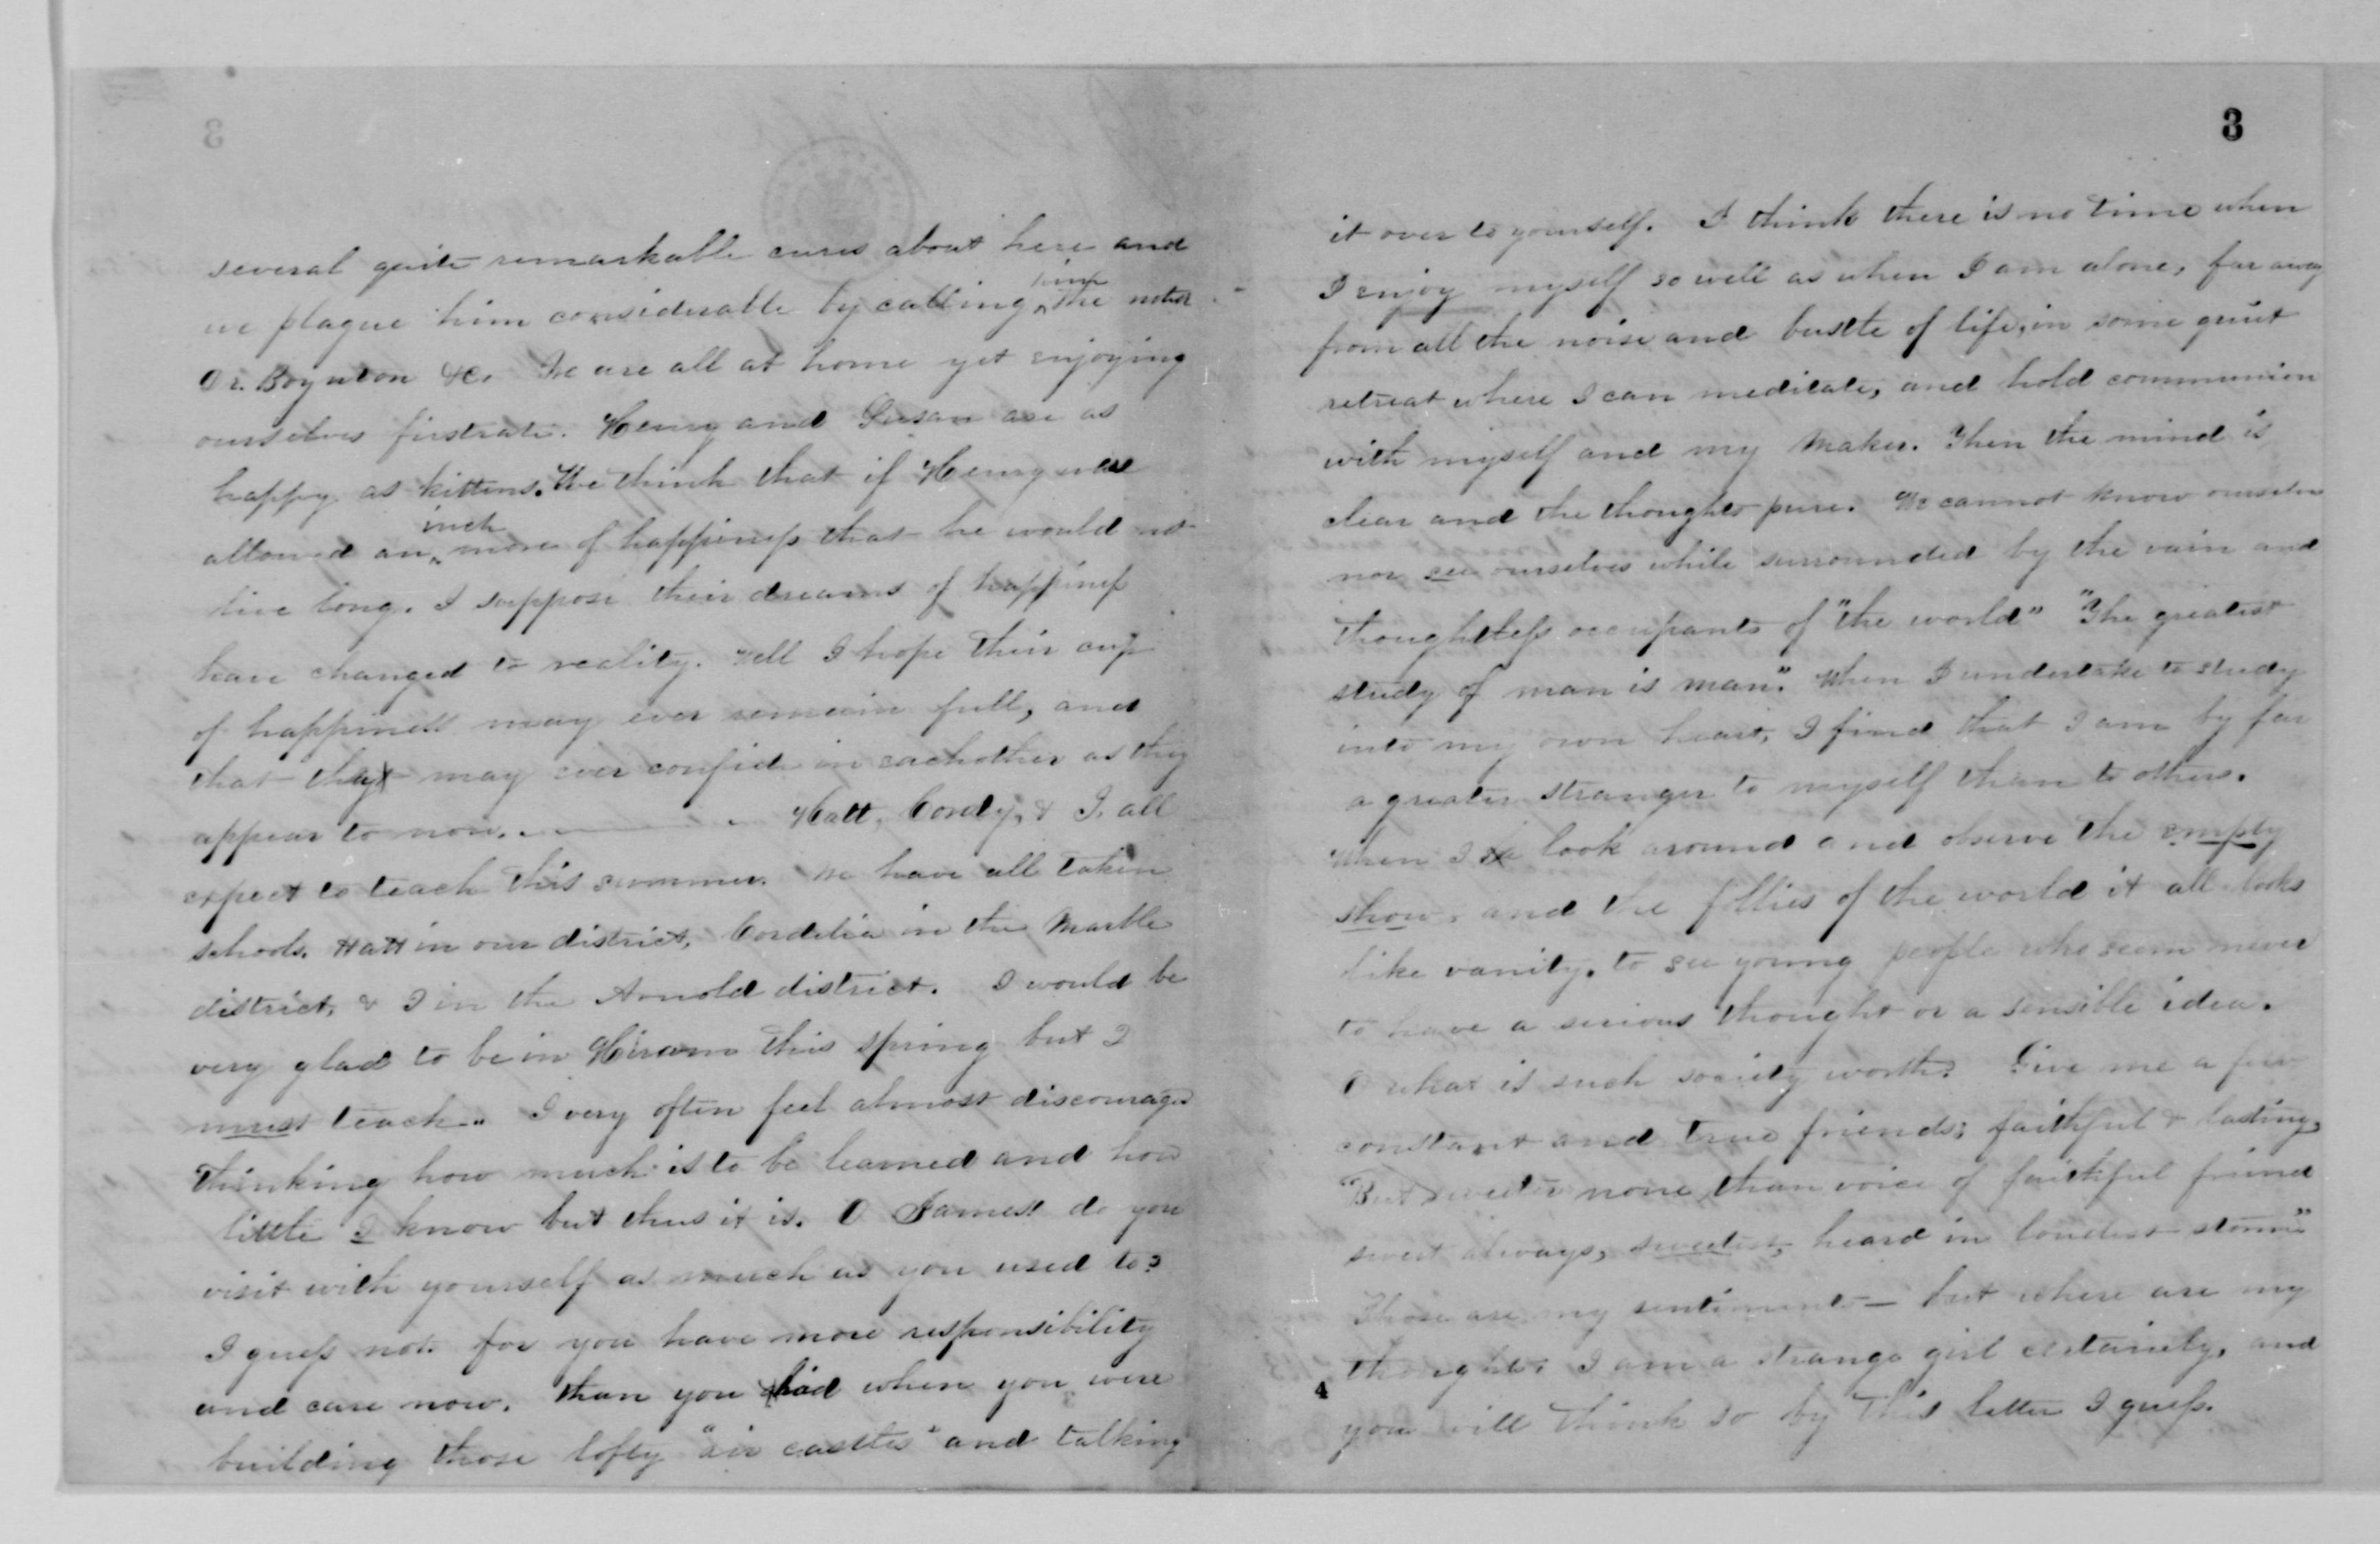 several quite remarkable cures about here and
we plague him considerable by calling him the noted
Dr. Boynton &c. We are all at home yet enjoying
ourselves firstrate. Henry and Susan are as
happy as kittens. We think that if Henry was
allowed an inch more of happiness that he would not
live long. I suppose their dreams of happiness
have changed to reality. Well I hope their cup
of happiness may ever remain full, and
that they may ever confide in eachother as they
appear to now. Hatt, Cordy, & I, all
expect to teach this summer. We have all taken
schools. Hatt in our district, Cordelia in the Marble
district, & I in the Arnold district. I would be
very glad to be in Hiram this spring but I
must teach. I very often feel almost discouraged
thinking how much is to be learned and how
little I know but thus it is. O James! do you
visit with yourself as much as you used to?
I guess not. for you have more responsibility
and care now. than you had when you were
building those lofty "air castles" and talking
3
it over to yourself. I think there is no time when
I enjoy myself so well as when I am alone, far away
from all the noise and bustle of life, in some quiet
retreat where I can meditate, and hold communion
with myself and my Maker. Then the mind is
clear and the thoughts pure. We cannot know ourselves
nor see ourselves while surrounded by the vain and
thoughtless occupants of "the world" "The greatest
study of man is man". When I undertake to study
into my own heart, I find that I am by far
a greater stranger to myself than to others.
When I look around and observe the empty
show, and the follies of the world it all looks
like vanity. to see young people who seem never
to have a serious thought or a sensible idea.
O what is such society worth? Give me a few
constant and true friends; faithful & lasting,
"But sweeter none than voice of faithful friend
sweet always, sweetest, heard in loudest storm"
Those are my sentiments— but where are my
thoughts. I am a strange girl certainly, and
4
you will think so by this letter I guess.